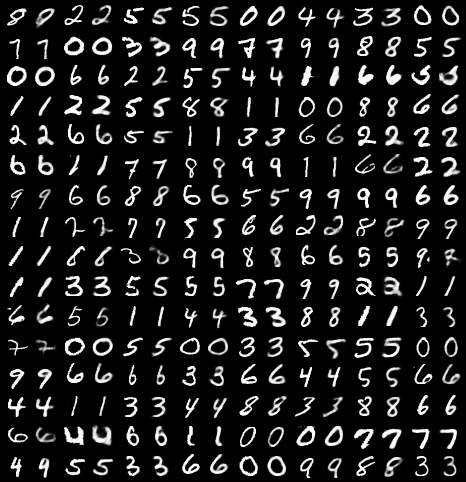 8 9 2 2 5 5 5 5 0 0 4 4 3 3 0 0
7 7 0 0 3 3 9 9 7 7 9 9 8 8 5 5
0 0 6 6 2 2 5 5 4 4 1 1 6 6
1 1 2 2 5 5 8 8 1 1 0 0 8 8 6 6
2 2 6 6 5 5 1 1 3 3 6 6 2 2 2 2
6 6 1 1 7 7 8 9 9 9 1 1 6 6 2 2
9 9 6 6 8 8 6 6 5 5 9 9 9 9 6 6
1 1 2 2 7 7 5 5 6 6 2 2 8 8 9 9
1 1 8 8 3 3 9 9 8 8 6 6 5 5 9
1 1 3 3 5 5 5 5 7 7 9 9 2 2 1 1
6 6 5 5 1 1 4 4 3 3 8 8 1 1 3 3
7 7 0 0 5 5 0 0 3 3 5 5 5 5 0 0
9 9 6 6 6 6 3 3 6 6 4 4 5 5 6 6
4 4 1 1 3 3 4 4 8 8 3 3 8 8 6 6
6 6 4 4 6 6 1 1 0 0 0 0 7 7 7 7
4 9 5 5 3 3 6 6 0 0 9 9 8 8 3 3